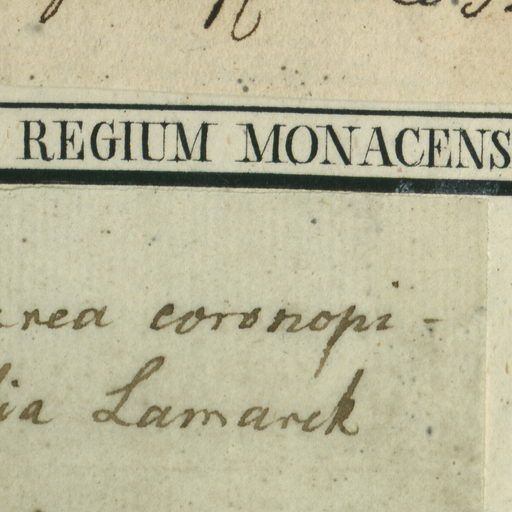 REGIUM MONACENS
rea coronopi-
lia Lamarck